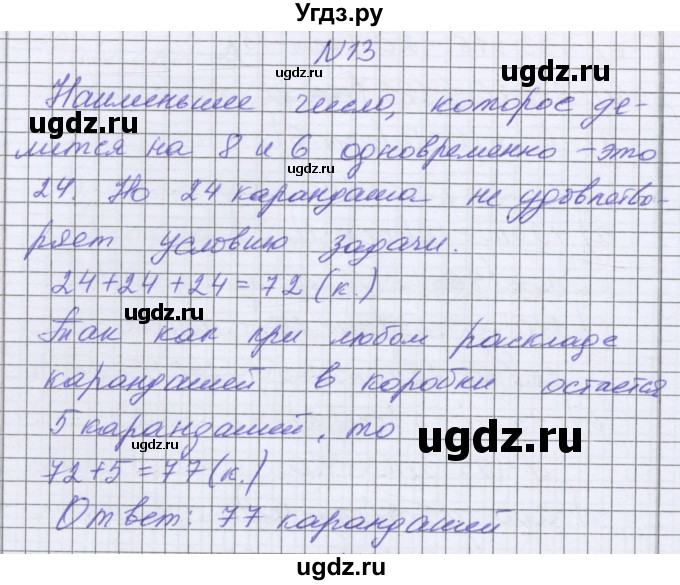 Угдз.ру
N13
ugdz.ru
ugdz.ru
Наименьшее число, которое де-
ugdz.ru
лится на 8 и 6 одновременно – это
24. Но 24 карандаша не удовлетво-
ugdz.ru
ugdz.ru
ряет условию задачи.
24+24+24=72 (к.)
ugdz.ru
Так как при любом раскладе
карандашей в коробки остается
5 карандашей, то
ugdz.ru
ugdz.ru
72+5=77(к.)
Ответ: 77 карандашей
ugdz.ru
ugdz.ru